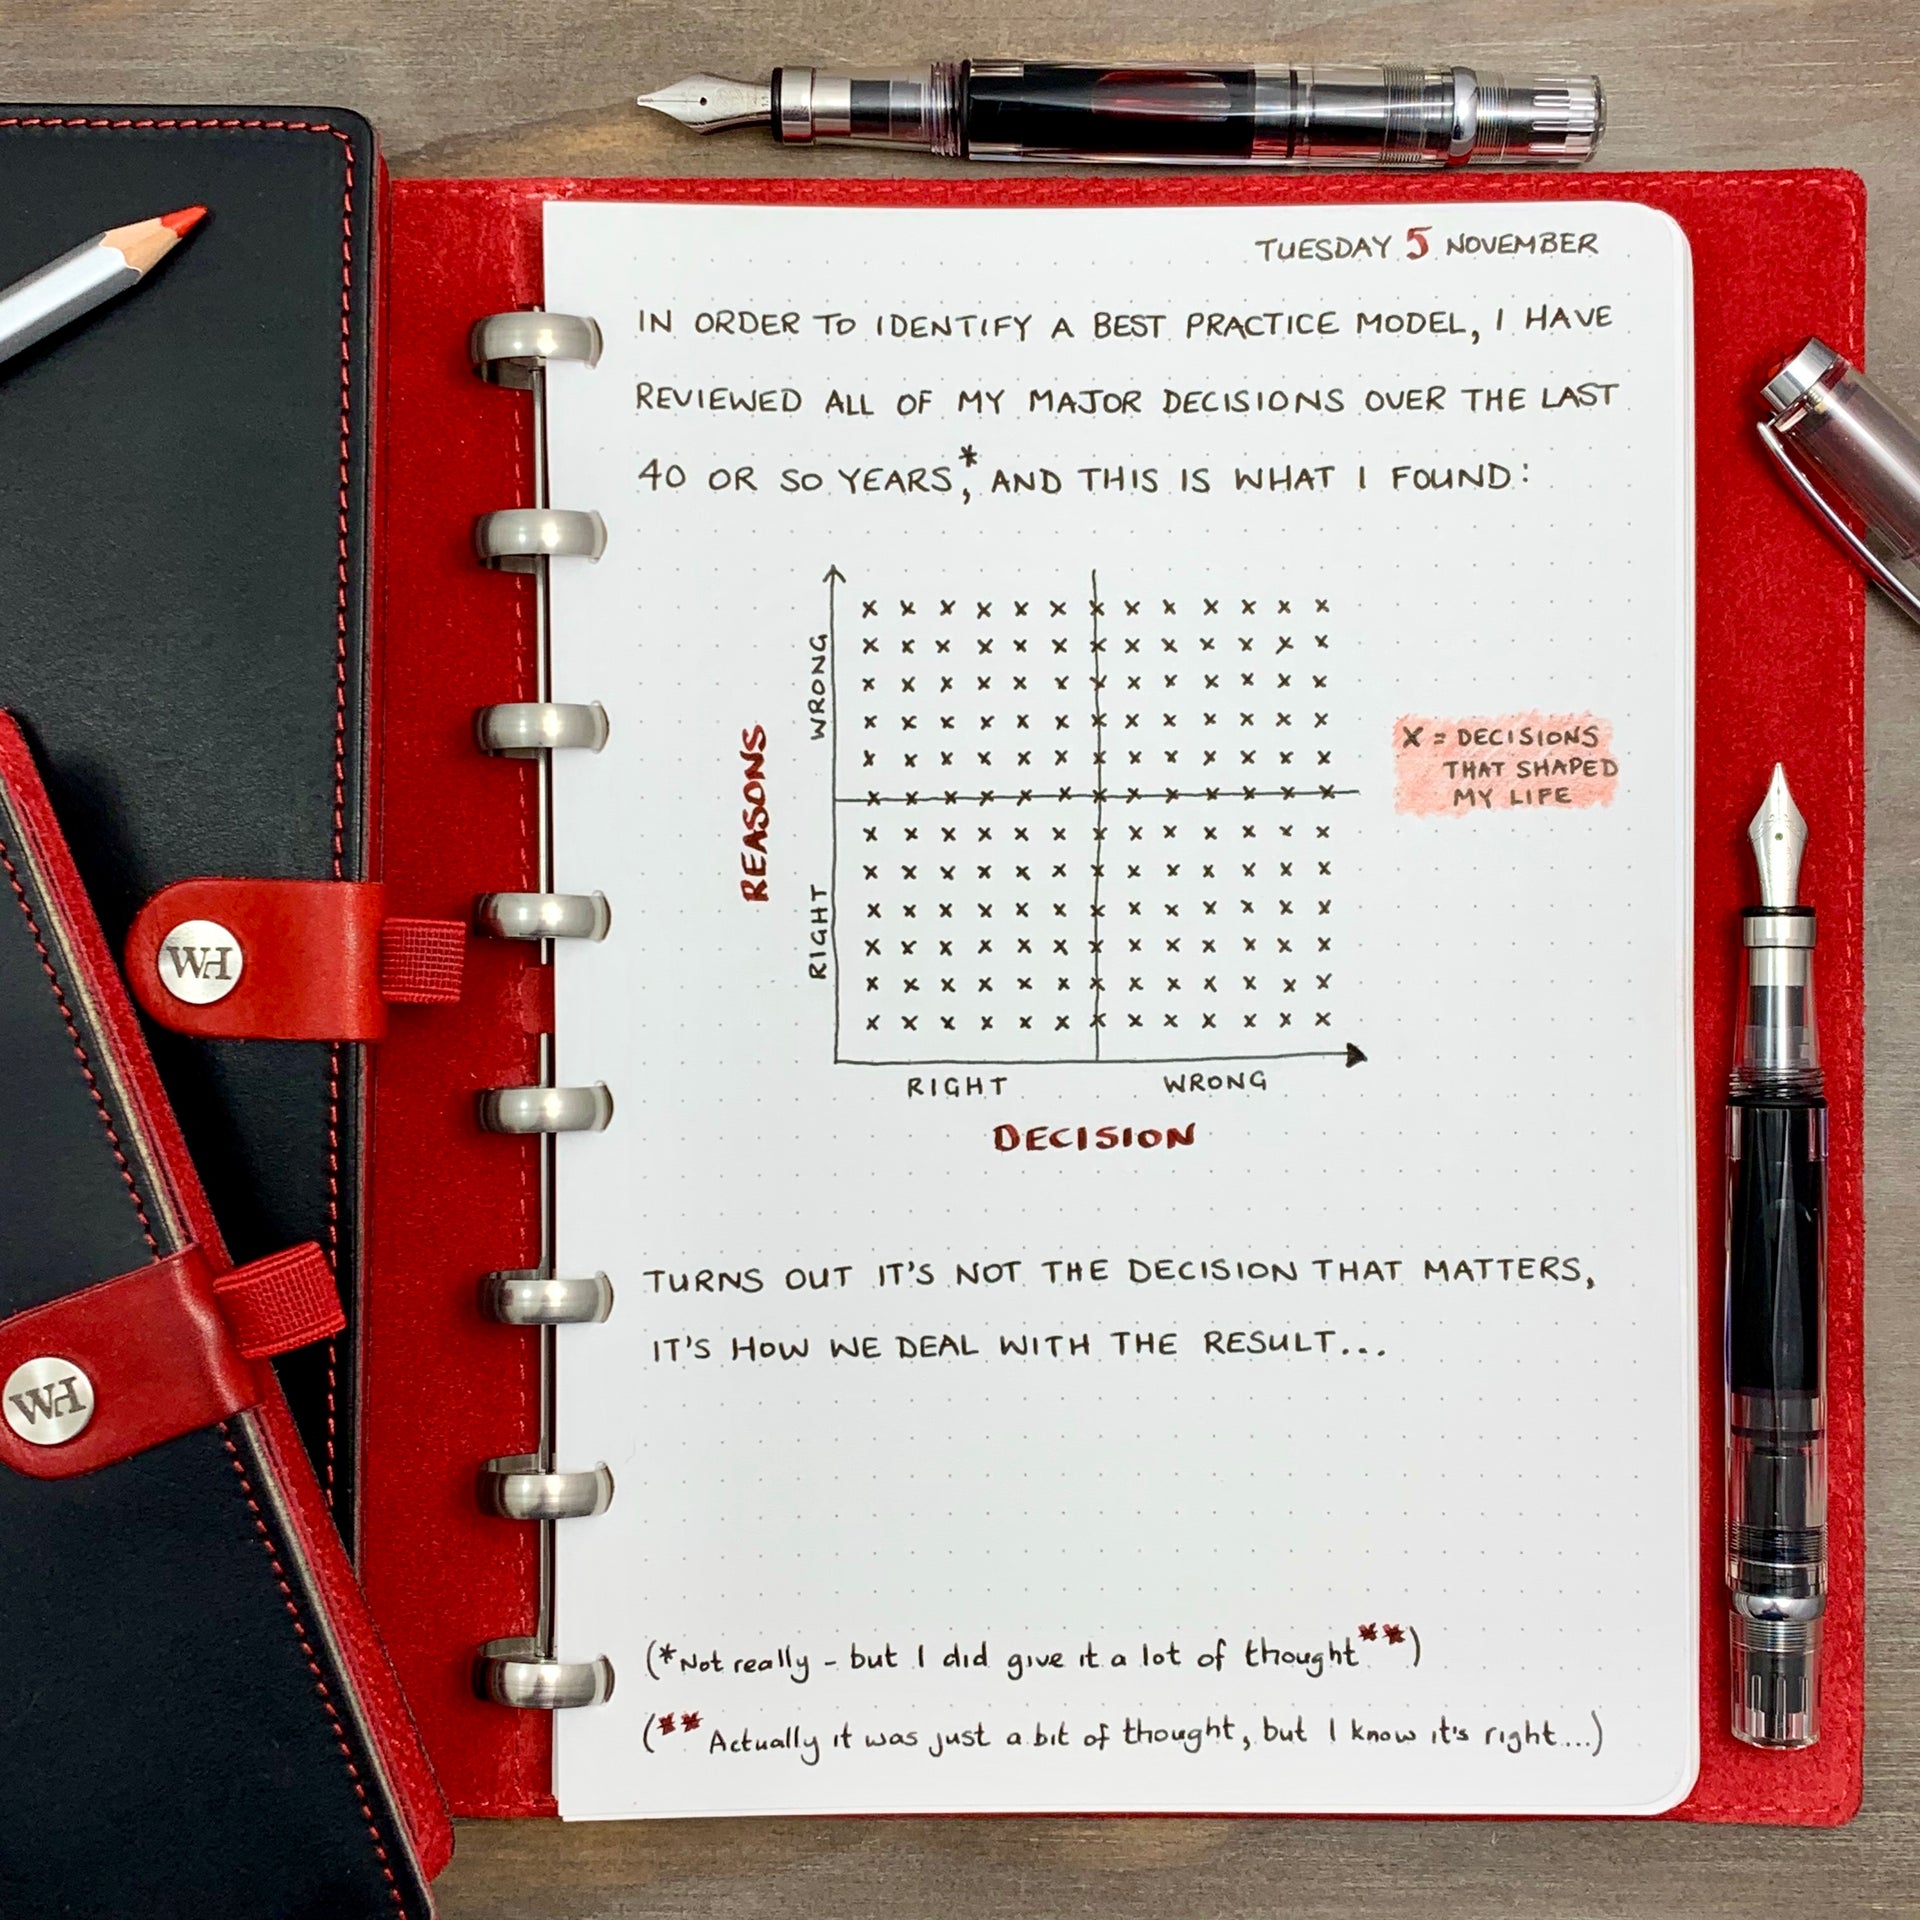 TUESDAY 5 NOVEMBER
IN ORDER TO IDENTIFY A BEST PRACTICE MODEL, I HAVE
REVIEWED ALL OF MY MAJOR DECISIONS OVER THE LAST
40 OR SO YEARS,* AND THIS IS WHAT I FOUND:
REASONS
WRONG
RIGHT
X = DECISIONS
THAT SHAPED
MY LIFE
RIGHT
WRONG
DECISION
TURNS OUT IT'S NOT THE DECISION THAT MATTERS,
IT'S HOW WE DEAL WITH THE RESULT...
(*Not really - but I did give it a lot of thought**)
(** Actually it was just a bit of thought, but I know it's right...)
WH
WH